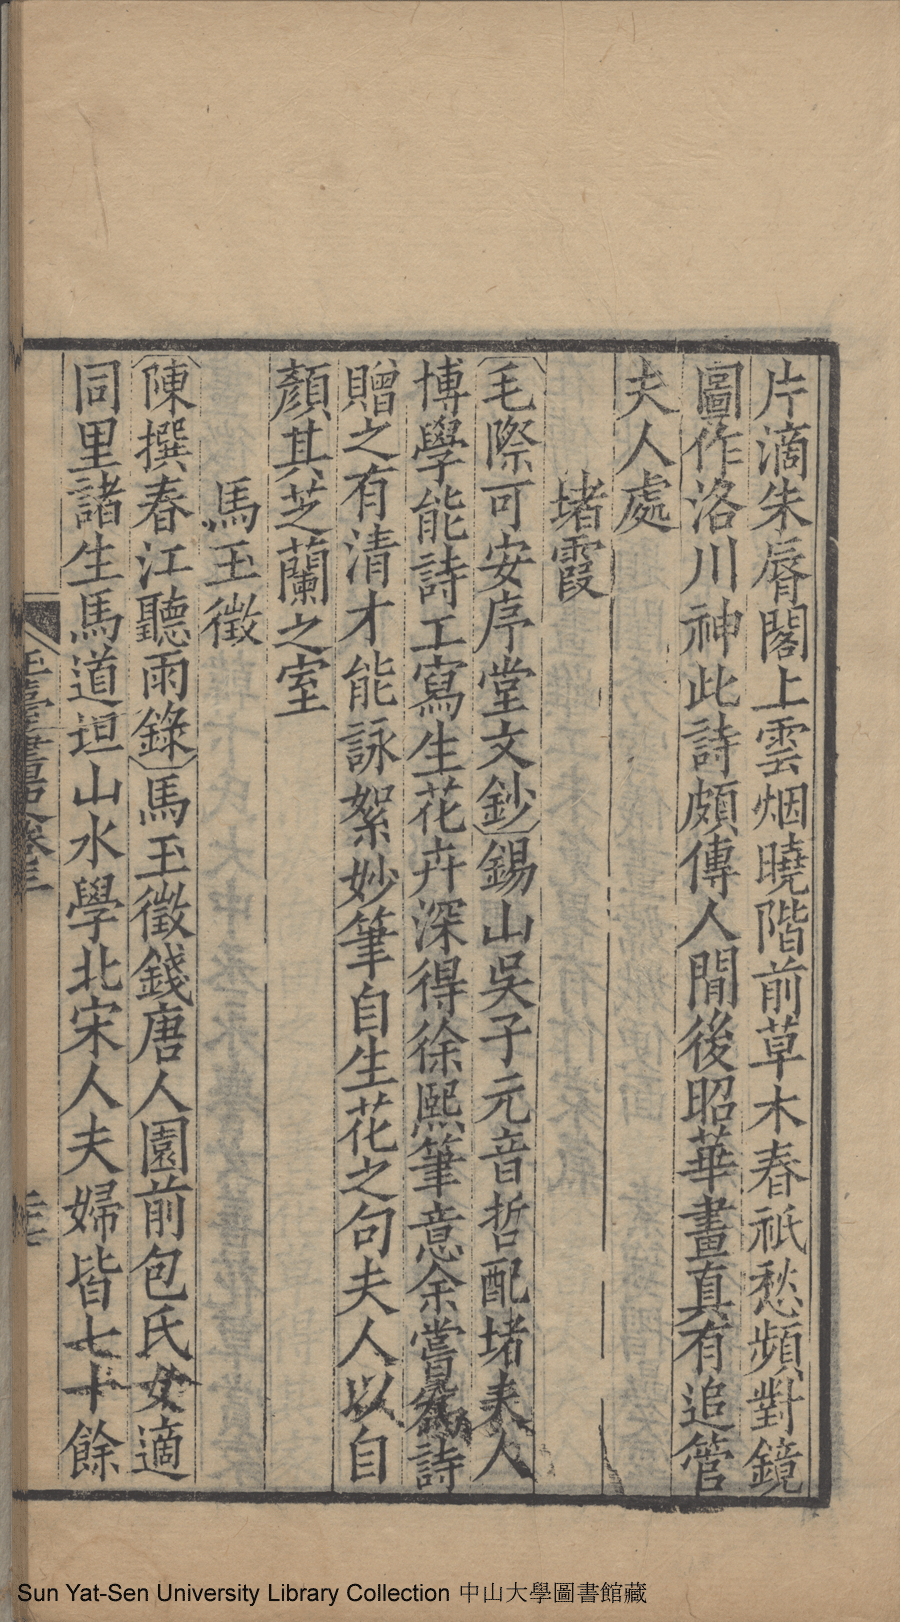 片滴朱脣閣上雲烟曉階前草木春祇愁頻對鏡
圖作洛川神此詩頗傳人間後昭華畫真有追管
夫人處
堵霞
毛際可安序堂文鈔錫山吳子元音哲配堵夫人
博學能詩工寫生花卉深得徐熙筆意余嘗為詩
贈之有清才能詠絮妙筆自生花之句夫人以自
顏其芝蘭之室
馬玉徵
陳撰春江聽雨錄馬玉徵錢唐人園前包氏女適
同里諸生馬道垣山水學北宋人夫婦皆七十餘
玉臺畫史卷三
Sun Yat-Sen University Library Collection 中山大學圖書館藏